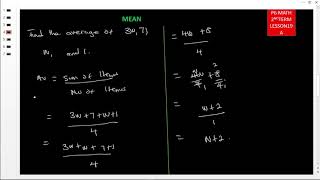 MEAN
P6 MATH
2ND TERM
LESSON19
A
Find the average of 3w, 7,
w, and 1.
Av = Sum of Items
No of Items
= 3w + 7 + w + 1
4
= 3w + w + 7 + 1
4
= 4w + 8
4
= 4w + 8 2
4 4
= w + 2
1
= w + 2.